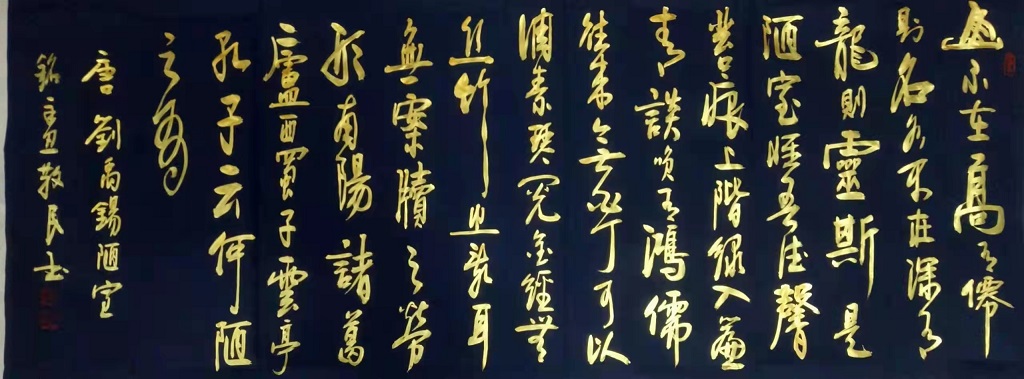 山不在高有僊
則名水不在深有
龍則靈斯是
陋室唯吾德馨
苔痕上階綠入簾
青談笑有鴻儒
往來無白丁可以
調素琴閱金經無
丝竹之亂耳
無案牘之勞
形南陽諸葛
廬西蜀子雲亭
孔子云何陋
之有
唐劉禹錫陋室
銘丑民书